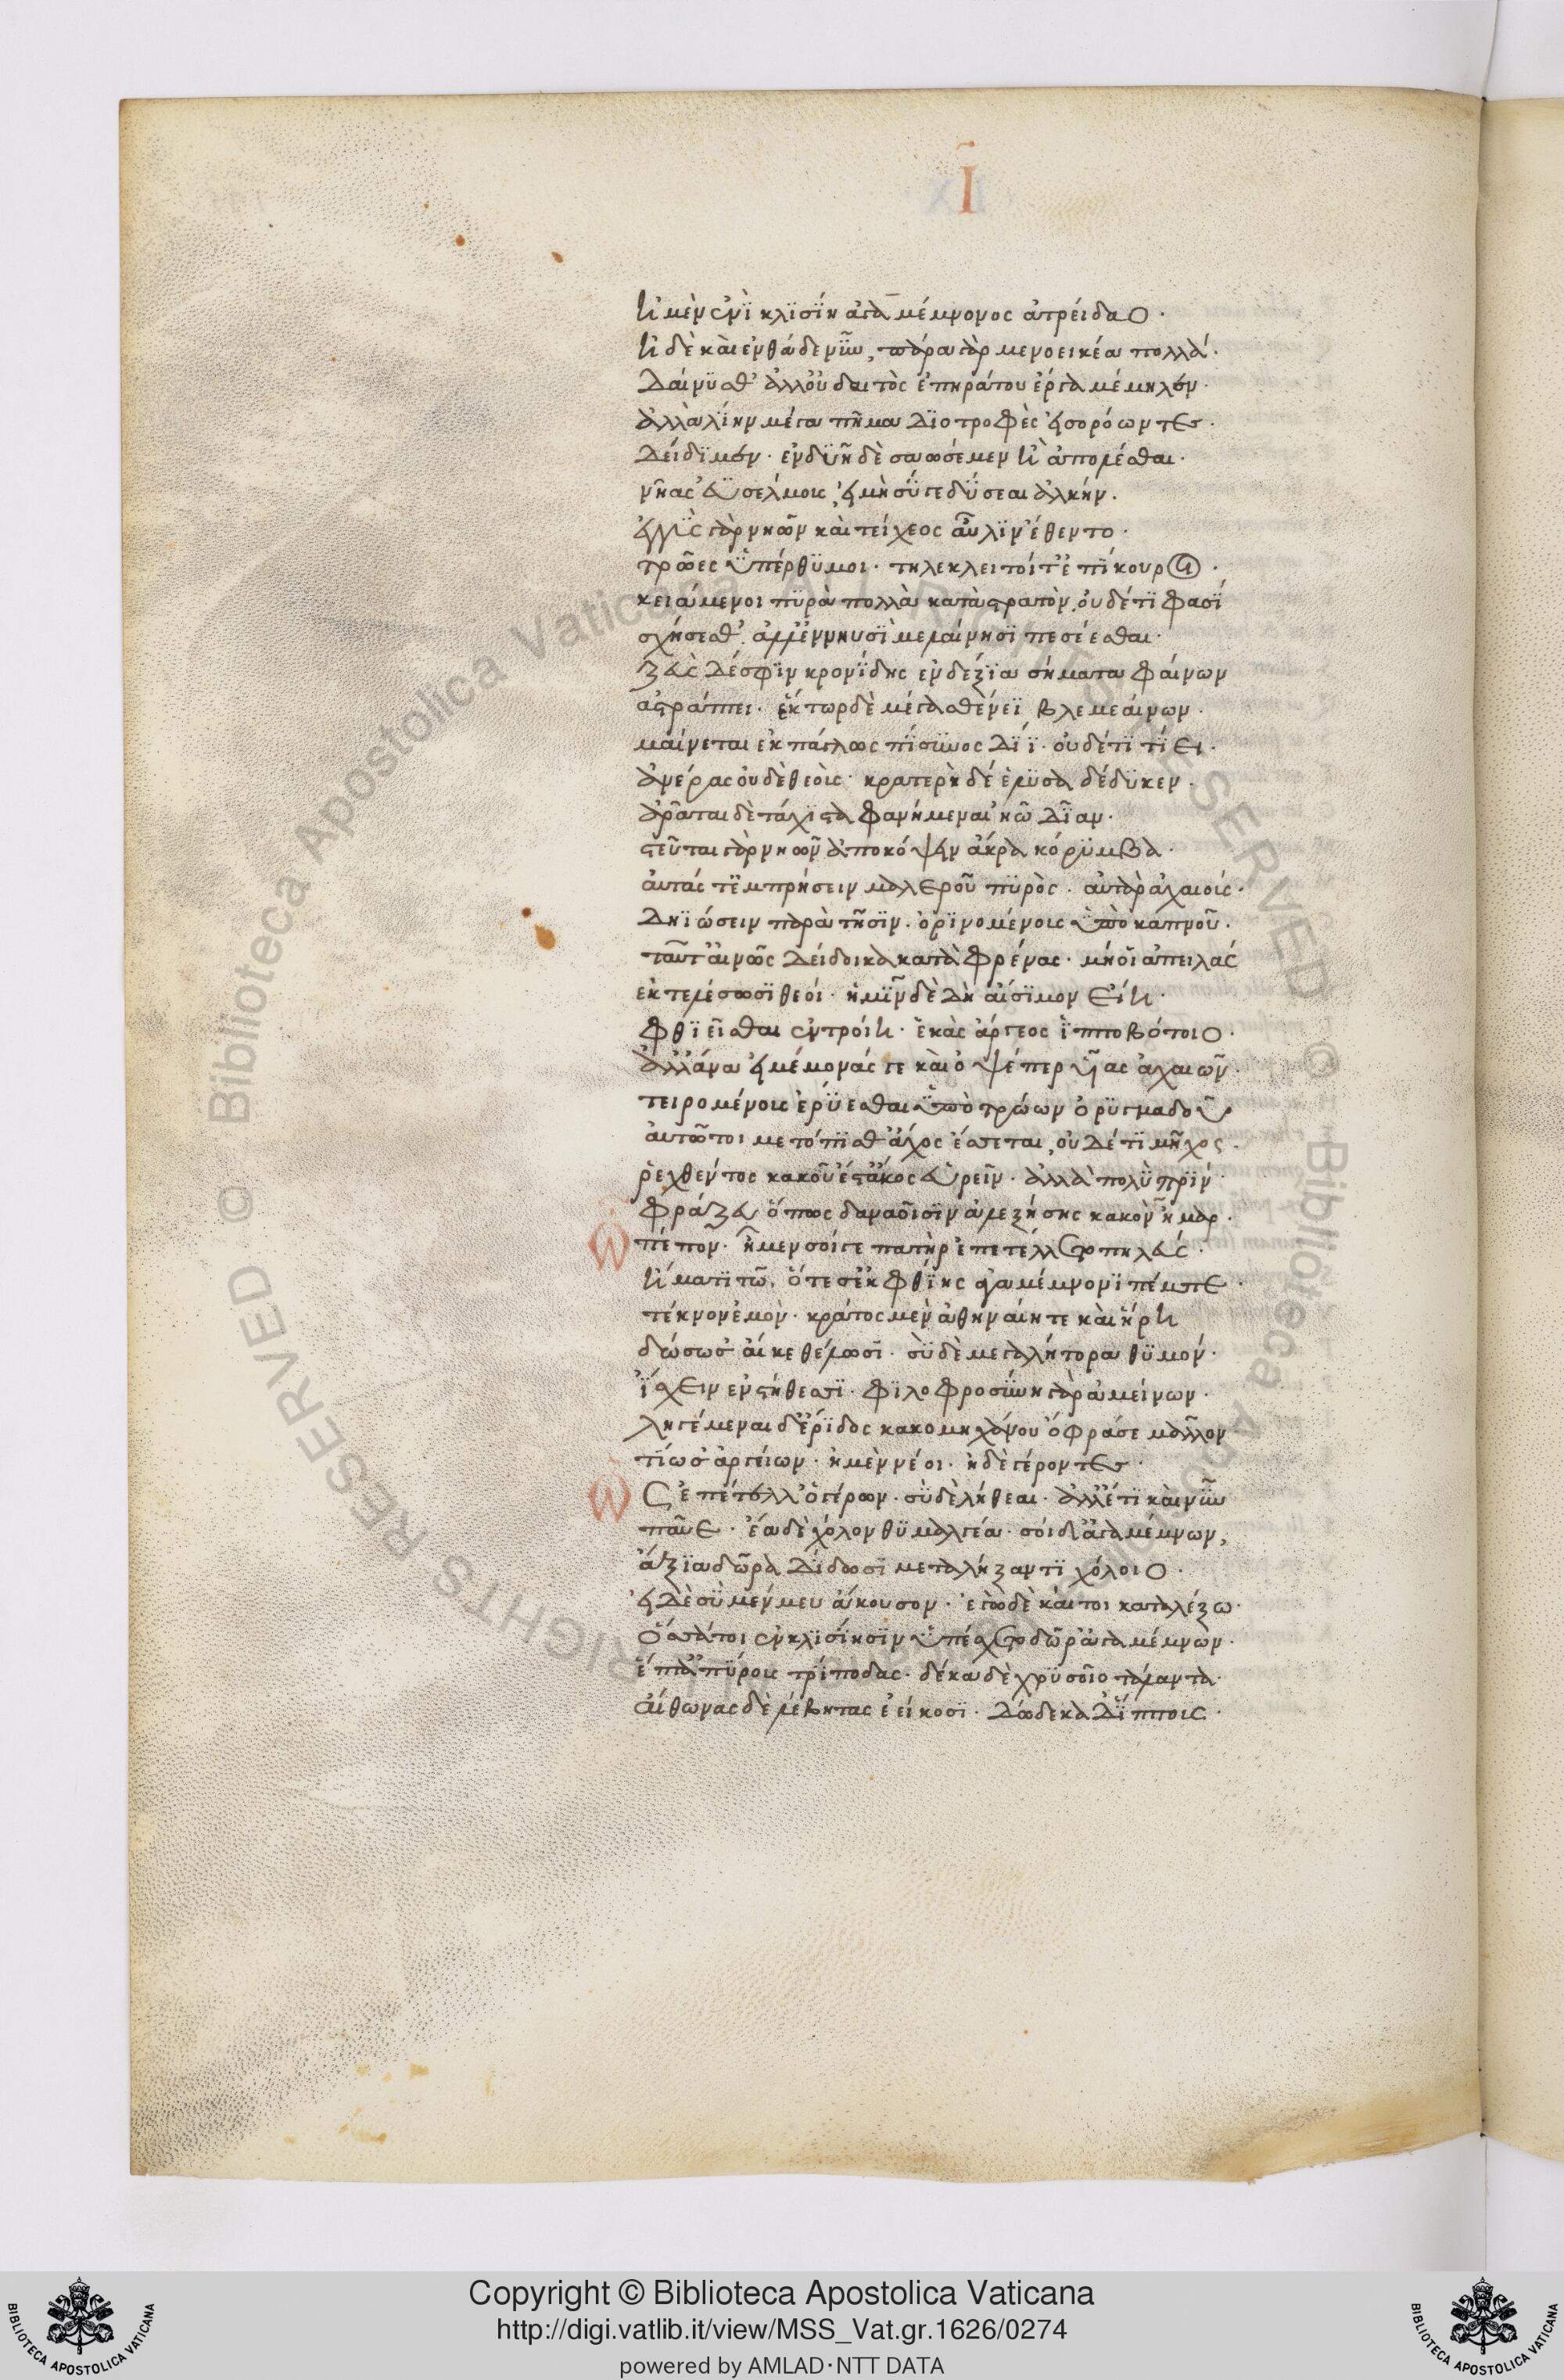 Ι
ἠμὲν ἐνὶ κλισίη ἀγαμέμνονος ἀτρείδαο·
ἠδὲ καὶ ἐνθάδε νῦν, πάρα γὰρ μενοεικέα πολλά·
δαίνυσθ' ἀλλ' οὐ δαιτὸς ἐπηράτου ἔργα μέμηλεν·
ἀλλὰ λίην μέγα πῆμα διοτρεφὲς εἰσορόωντες·
δείδιμεν· ἐν δυῇ δὲ σαωσέμεν ἢ ἀπολέσθαι·
νῆας ἐϋσέλμους, εἰ μὴ σύ γε δύσεαι ἀλκήν·
ἐγγὺς γὰρ νηῶν καὶ τείχεος αὖλιν ἔθεντο·
τρῶες ὑπέρθυμοι· τηλεκλειτοί τ' ἐπίκουροι·
κειάμενοι πυρὰ πολλὰ κατὰ στρατὸν, οὐδέ τι φασί
σχήσεσθ'. ἀλλ' ἐν νηυσὶ μελαίνησι πεσέεσθαι·
ζεὺς δέ σφιν κρονίδης ἐνδέξια σήματα φαίνων
ἀστράπτει· ἕκτωρ δὲ μέγα σθένεϊ βλεμεαίνων·
μαίνεται ἐκπάγλως πίσυνος διί· οὐδέ τι τίει·
ἀνέρας οὐδὲ θεοὺς· κρατερὴ δέ ἑ λύσσα δέδυκεν·
ἀρᾶται δὲ τάχιστα φανήμεναι ἠῶ δῖαν·
στεῦται γὰρ νηῶν ἀποκόψειν ἄκρα κόρυμβα·
αὐτάς τ' ἐμπρήσειν μαλεροῦ πυρὸς· αὐτὰρ ἀχαιούς·
δηιώσειν παρὰ τῆσιν· ὀρινομένους ὑπὸ καπνοῦ·
ταῦτ' αἰνῶς δείδοικα κατὰ φρένας· μή οἱ ἀπειλάς
ἐκτελέσωσι θεοί· ἡμῖν δὲ δὴ αἴσιμον εἴη·
φθίεῖσθαι ἐν τροίη· ἑκὰς ἄργεος ἱπποβότοιο·
ἀλλ' ἄνα εἰ μέμονάς γε καὶ ὀψέ περ υἷας ἀχαιῶν·
τειρομένους ἐρύεσθαι ὑπὸ τρώων ὀρυγμαδοῦ
αὐτῶ τοι μετόπισθ' ἄχος ἔσσεται, οὐδέ τι μῆχος·
ῥεχθέντος κακοῦ ἔστ' ἄκος εὑρεῖν· ἀλλὰ πολὺ πρίν
φράζευ ὅπως δαναοῖσιν ἀλεξήσης κακὸν ἦμαρ·
ὦ πέπον· ἦ μεν σοί γε πατὴρ ἐπετέλλετο πηλεύς·
ἤματι τῶ, ὅτε σ' ἐκ φθίης ἀγαμέμνονι πέμπε·
τέκνον ἐμὸν· κράτος μὲν ἀθηναίη τε καὶ ἥρη
δώσωσ' αἴ κε θέλωσι· σὺ δὲ μεγαλήτορα θυμόν·
ἴσχειν ἐν στήθεσσι· φιλοφροσύνη γὰρ ἀμείνων·
ληγέμεναι δ' ἔριδος κακομηχάνου ὄφρα σε μᾶλλον
τίωσ' ἀργείων· ἠμὲν νέοι· ἠδὲ γέροντες·
ὣς ἐπέτελλ' ὁ γέρων· σὺ δὲ λήθεαι· ἀλλ' ἔτι καὶ νῦν
παῦε· ἔα δὲ χόλον θυμαλγέα· σοὶ δ' ἀγαμέμνων,
ἄξια δῶρα δίδωσι μεταλήξαντι χόλοιο·
εἰ δὲ σὺ μέν μευ ἄκουσον· ἐγὼ δὲ κέ τοι καταλέξω·
ὅσσά τοι ἐν κλισίησιν ὑπέσχετο δῶρ' ἀγαμέμνων·
ἕπτ' ἀπύρους τρίποδας· δέκα δὲ χρυσοῖο τάλαντα·
αἴθωνας δὲ λέβητας ἐείκοσι· δώδεκα δ' ἵππους·
Copyright © Biblioteca Apostolica Vaticana
http://digi.vatlib.it/view/MSS_Vat.gr.1626/0274
powered by AMLAD·NTT DATA